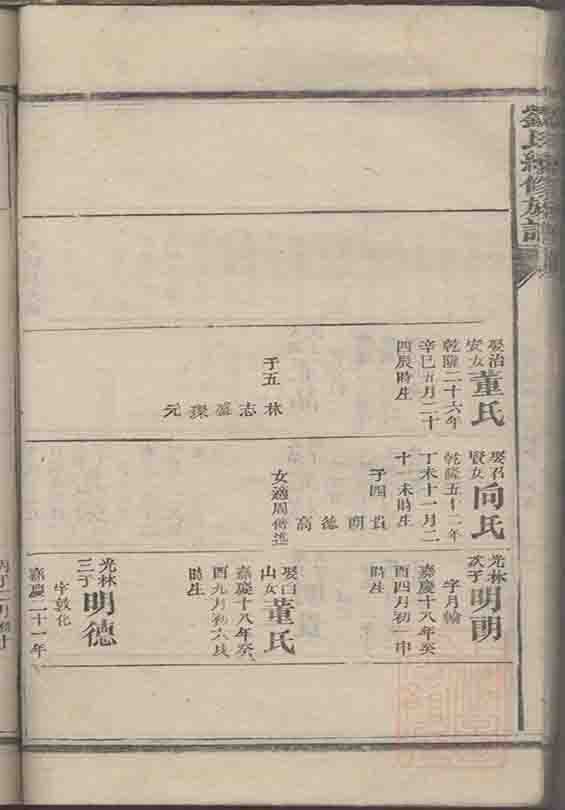 劉氏續修族譜
娶治
安女
董氏
乾隆二十六年
辛巳五月二十
四辰時生
子五
林
志
盛
璨
元
娶召
賢女
向氏
乾隆五十二年
丁未十一月二
十一未時生
子四
貴
朗
德
高
女適周傳述
光林
次子
明朗
字月輪
嘉慶十八年癸
酉四月初一申
時生
娶曰
山女
董氏
嘉慶十八年癸
酉九月初六戌
時生
光林
三子
明德
字敦化
嘉慶二十一年